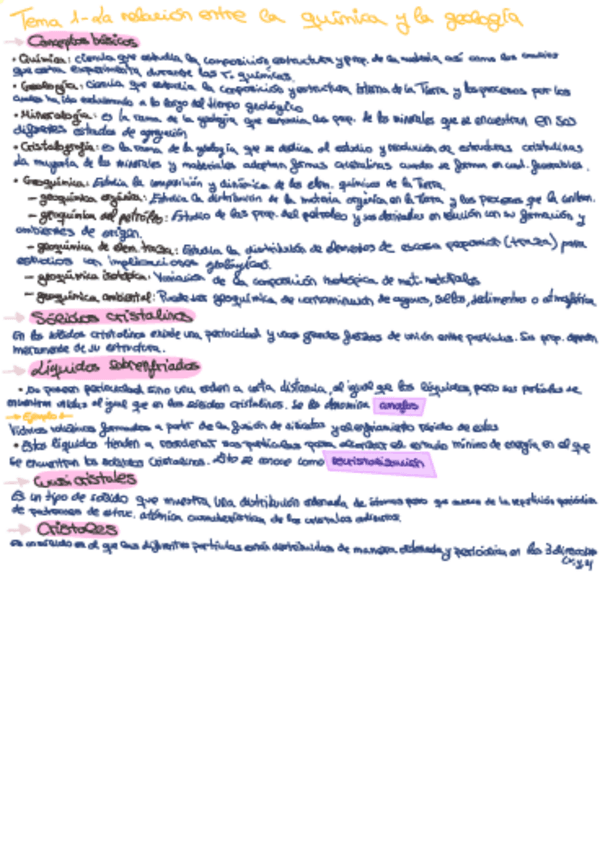 Tema 1- La relación entre la química y la geología
Conceptos básicos
• Química: ciencia que estudia la composición estructura y prop. de la materia, así como los cambios
que esta experimenta durante las r. químicas.
• Geología: ciencia que estudia la composición y estructura interna de la Tierra, y los procesos por los
cuales ha ido evolucionando a lo largo del tiempo geológico
• Mineralogía: es la rama de la geología que estudia las prop. de los minerales que se encuentran en sus
diferentes estados de agregación
• Cristalografía: es la rama de la geología que se dedica al estudio y resolución de estructuras cristalinas
La mayoría de los minerales y materiales adoptan formas cristalinas cuando se forman en cond. favorables.
• Geoquímica: Estudia la composición y dinámica de los elem. químicos de la Tierra.
- geoquímica orgánica: Estudia la distribución de la materia orgánica en la Tierra, y los procesos que la
- geoquímica del petróleo: Estudio de las prop. del petróleo y sus derivados en relación con su formación y
ambientes de origen.
- geoquímica de elem. traza: Estudia la distribución de elementos de escasa proporción (traza) para
estudios con implicaciones geológicas.
- geoquímica isotópica: Variación de la composición isotópica de mat. naturales
- geoquímica ambiental: geoquímica de contaminación de aguas, sedimentos o atmósfera
Sólidos cristalinos
En los sólidos cristalinos existe una periocidad y unas grandes fuerzas de unión entre partículas. Sus prop. depen
meramente de su estructura.
Líquidos sobrenfriados
• No poseen periocidad sino un orden a corta distancia, al igual que los líquidos, pero sus partículas se
encuentran unidas al igual que en los sólidos cristalinos. Se les denomina amorfos
Ejemplo
Vidrios volcánicos formados a partir de la fusión de silicatos y al enfriamiento rápido de estos
• Estos líquidos tienden a reordenar sus partículas para alcanzar el estado mínimo de energía en el que
se encuentran los sólidos cristalinos. Esto se conoce como recristalización
Cuasicristales
Es un tipo de sólido que muestra una distribución ordenada de átomos pero que carece de la repetición periódica
de patrones de estruc. atómica característica de los cristales ordinarios.
Cristales
es un sólido en el que las diferentes partículas están distribuidas de manera ordenada y periódica en las 3 direcciones